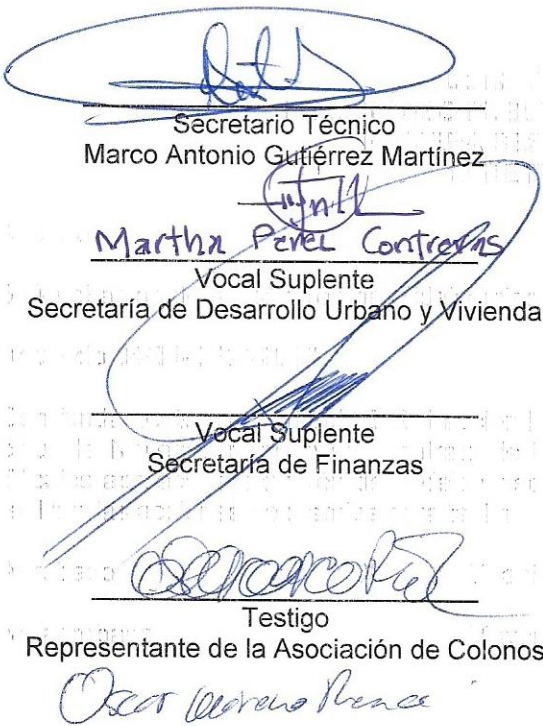 Secretario Técnico
Marco Antonio Gutiérrez Martínez
Martha Perez Contreras
Vocal Suplente
Secretaría de Desarrollo Urbano y Vivienda
Vocal Suplente
Secretaría de Finanzas
Testigo
Representante de la Asociación de Colonos
Oscar Moreno